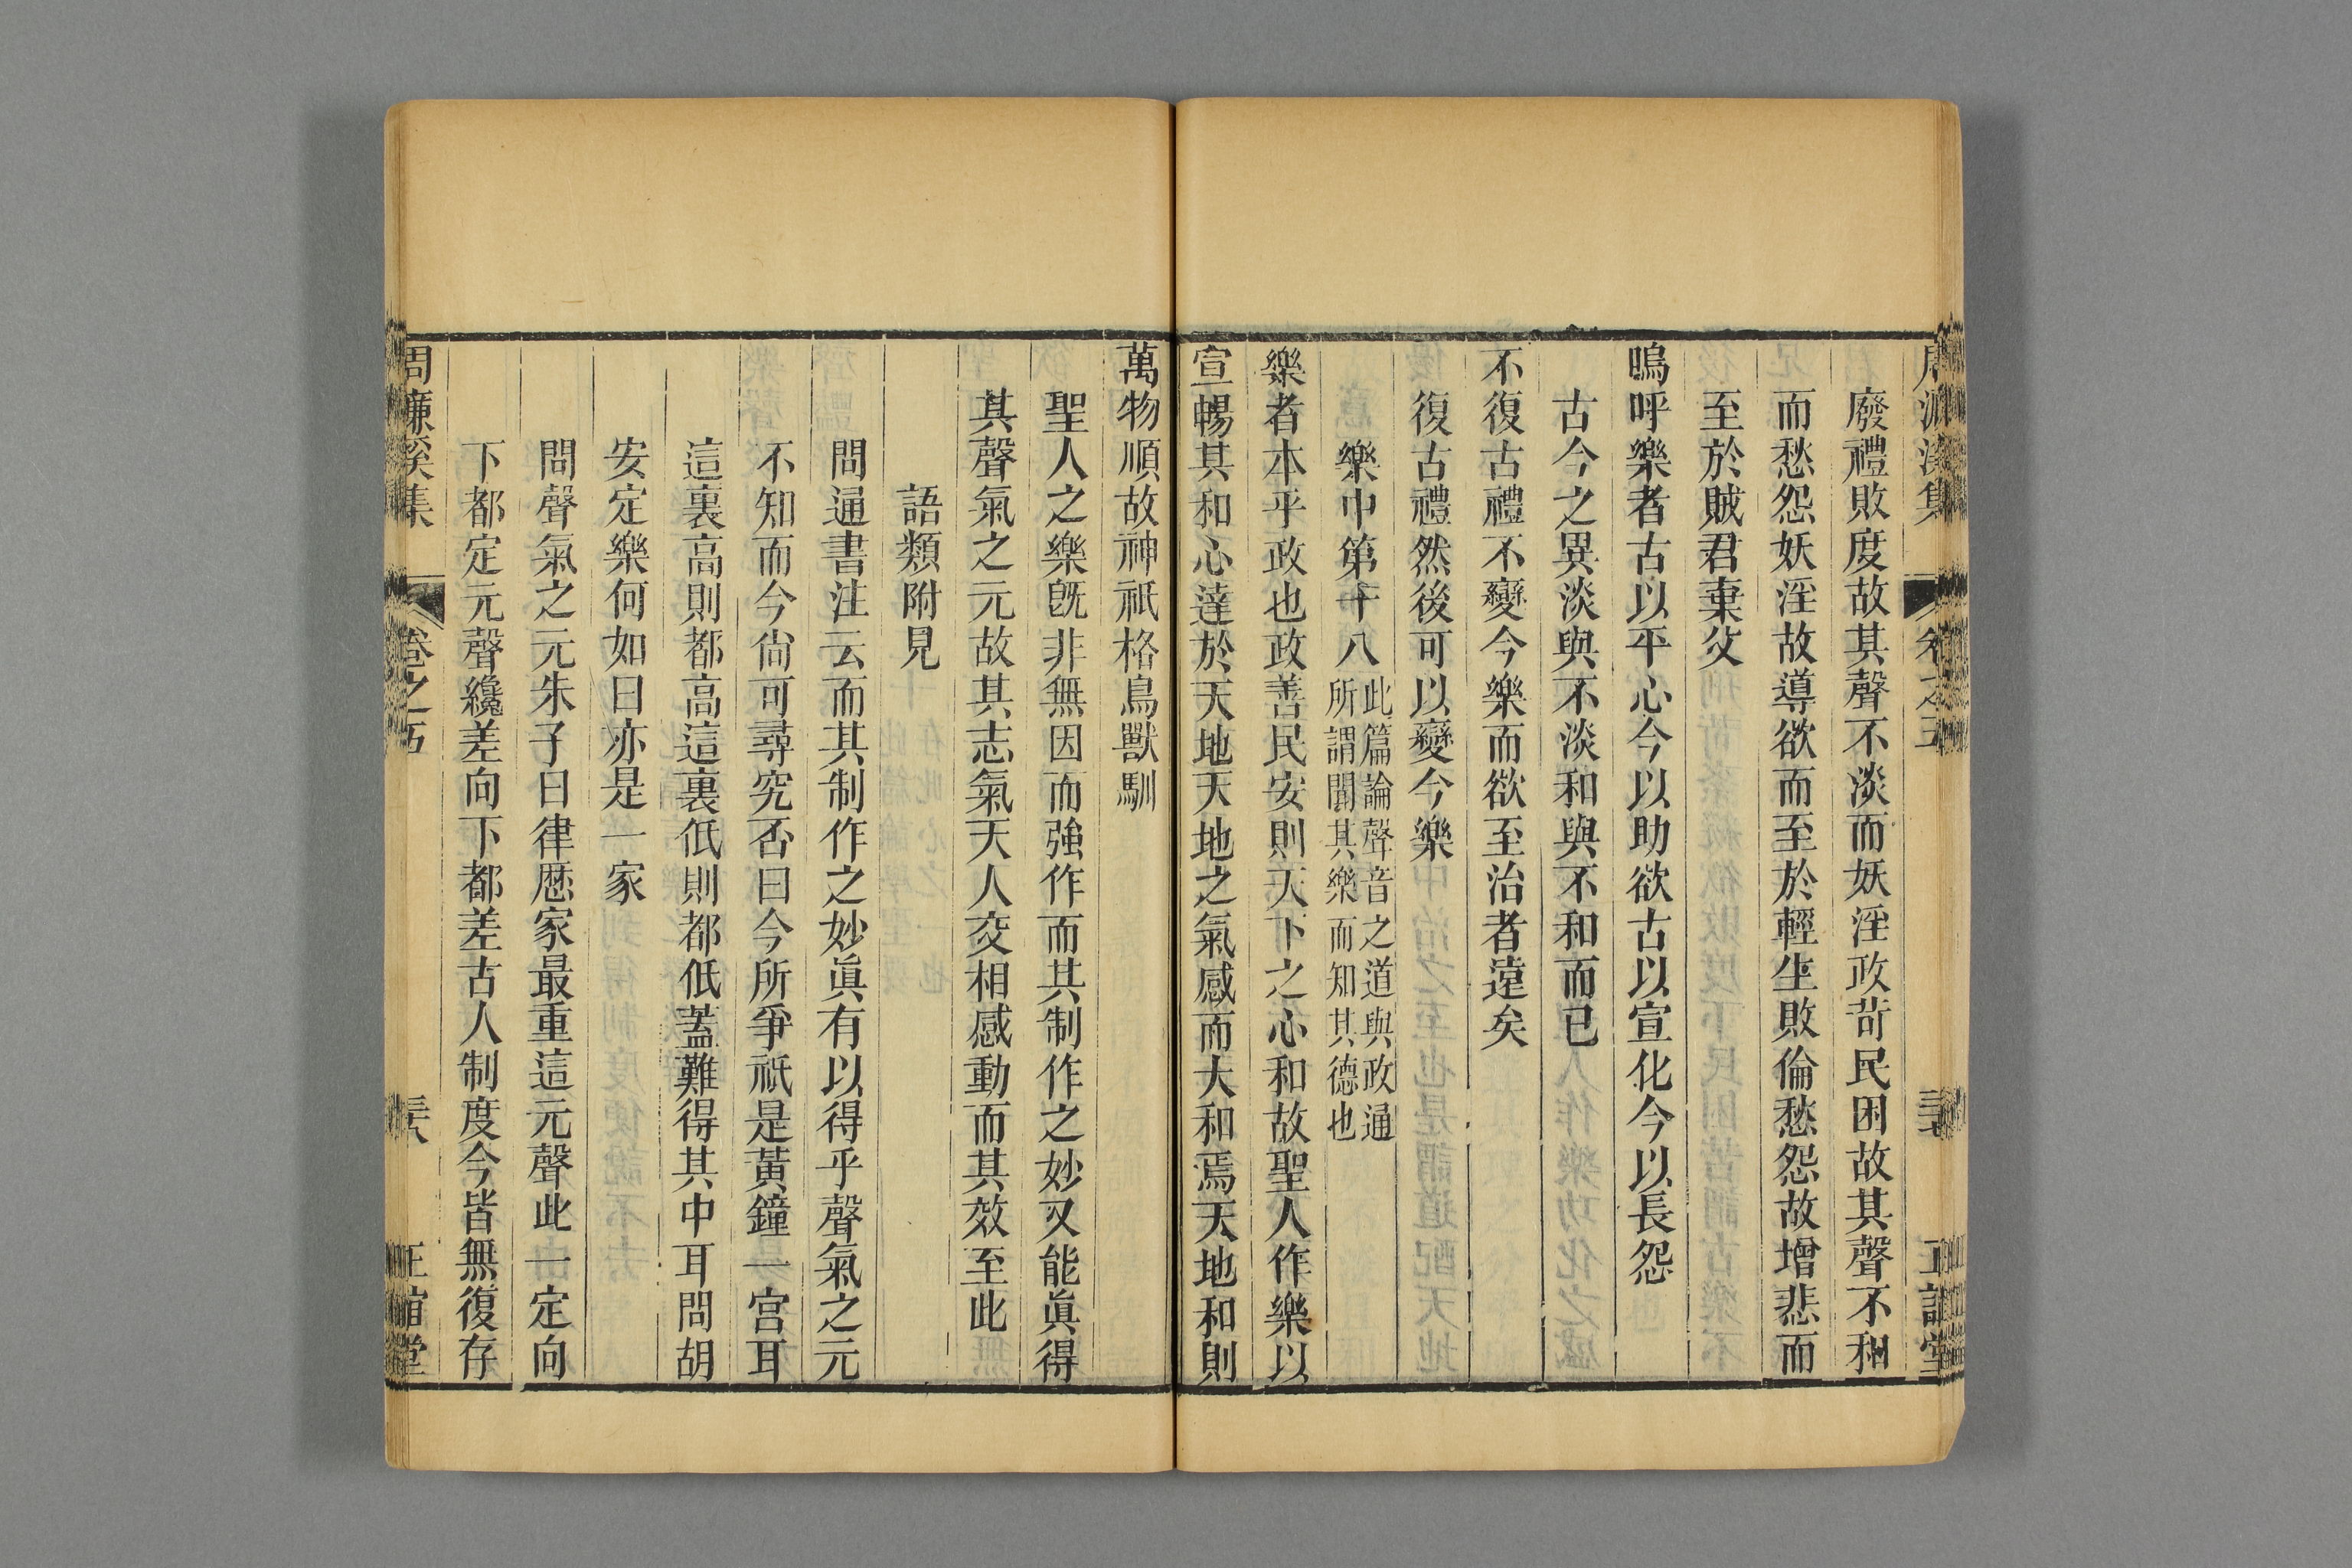 廢禮敗度故其聲不淡而妖淫政苛民困故其聲不和
而愁怨妖淫故導欲而至於輕生敗倫愁怨故增悲而
至於賊君棄父
嗚呼樂者古以平心今以助欲古以宣化今以長怨
古今之異淡與不淡和與不和而已
不復古禮不變今樂而欲至治者遠矣
復古禮然後可以變今樂
樂中第十八
此篇論聲音之道與政通
所謂聞其樂而知其德也
樂者本乎政也政善民安則天下之心和故聖人作樂以
宣暢其和心達於天地天地之氣感而大和焉天地和則
萬物順故神祇格鳥獸馴
聖人之樂旣非無因而強作而其制作之妙又能眞得
其聲氣之元故其志氣天人交相感動而其效至此
語類附見
問通書注云而其制作之妙眞有以得乎聲氣之元
不知而今尙可尋究否曰今所爭祇是黃鐘一宮耳
這裏高則都高這裏低則都低蓋難得其中耳問胡
安定樂何如曰亦是一家
問聲氣之元朱子曰律厯家最重這元聲此一定向
下都定元聲纔差向下都差古人制度今皆無復存
周濂溪集
卷之五